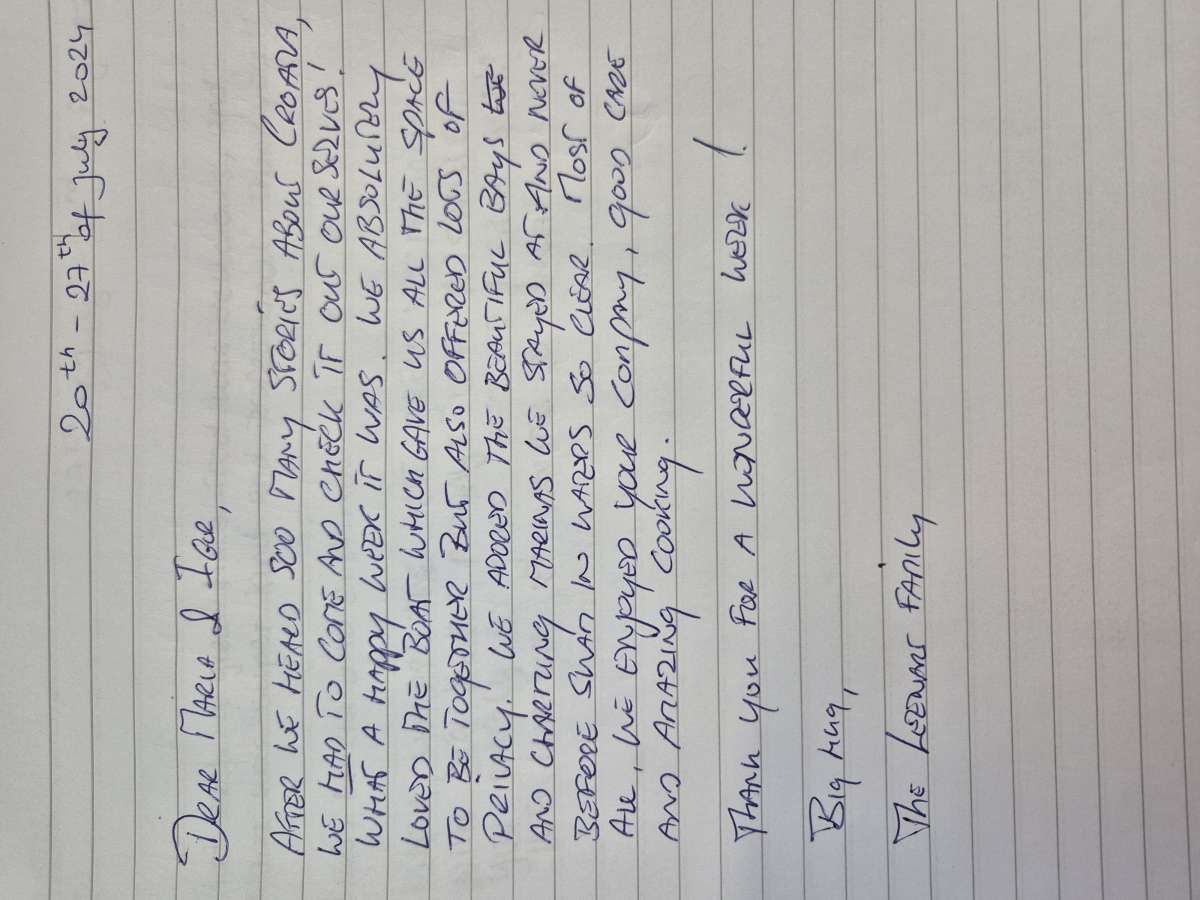 20th - 27th of july 2024
DEAR MARIA & IGOR,
AFTER WE HEARD SOO MANY STORIES ABOUT CROATIA,
WE HAD TO COME AND CHECK IT OUT OURSELVES!
WHAT A HAPPY WEEK IT WAS. WE ABSOLUTELY
LOVED THE BOAT WHICH GAVE US ALL THE SPACE
TO BE TOGETHER BUT ALSO OFFERED LOTS OF
PRIVACY. WE ADORED THE BEAUTIFUL BAYS
AND CHARMING MARINAS WE STAYED AT AND NEVER
BEFORE SWAM IN WATERS SO CLEAR. MOST OF
ALL, WE ENJOYED YOUR COMPANY, GOOD CARE
AND AMAZING COOKING.
THANK YOU FOR A WONDERFUL WEEK!
BIG HUG,
THE FAMILY